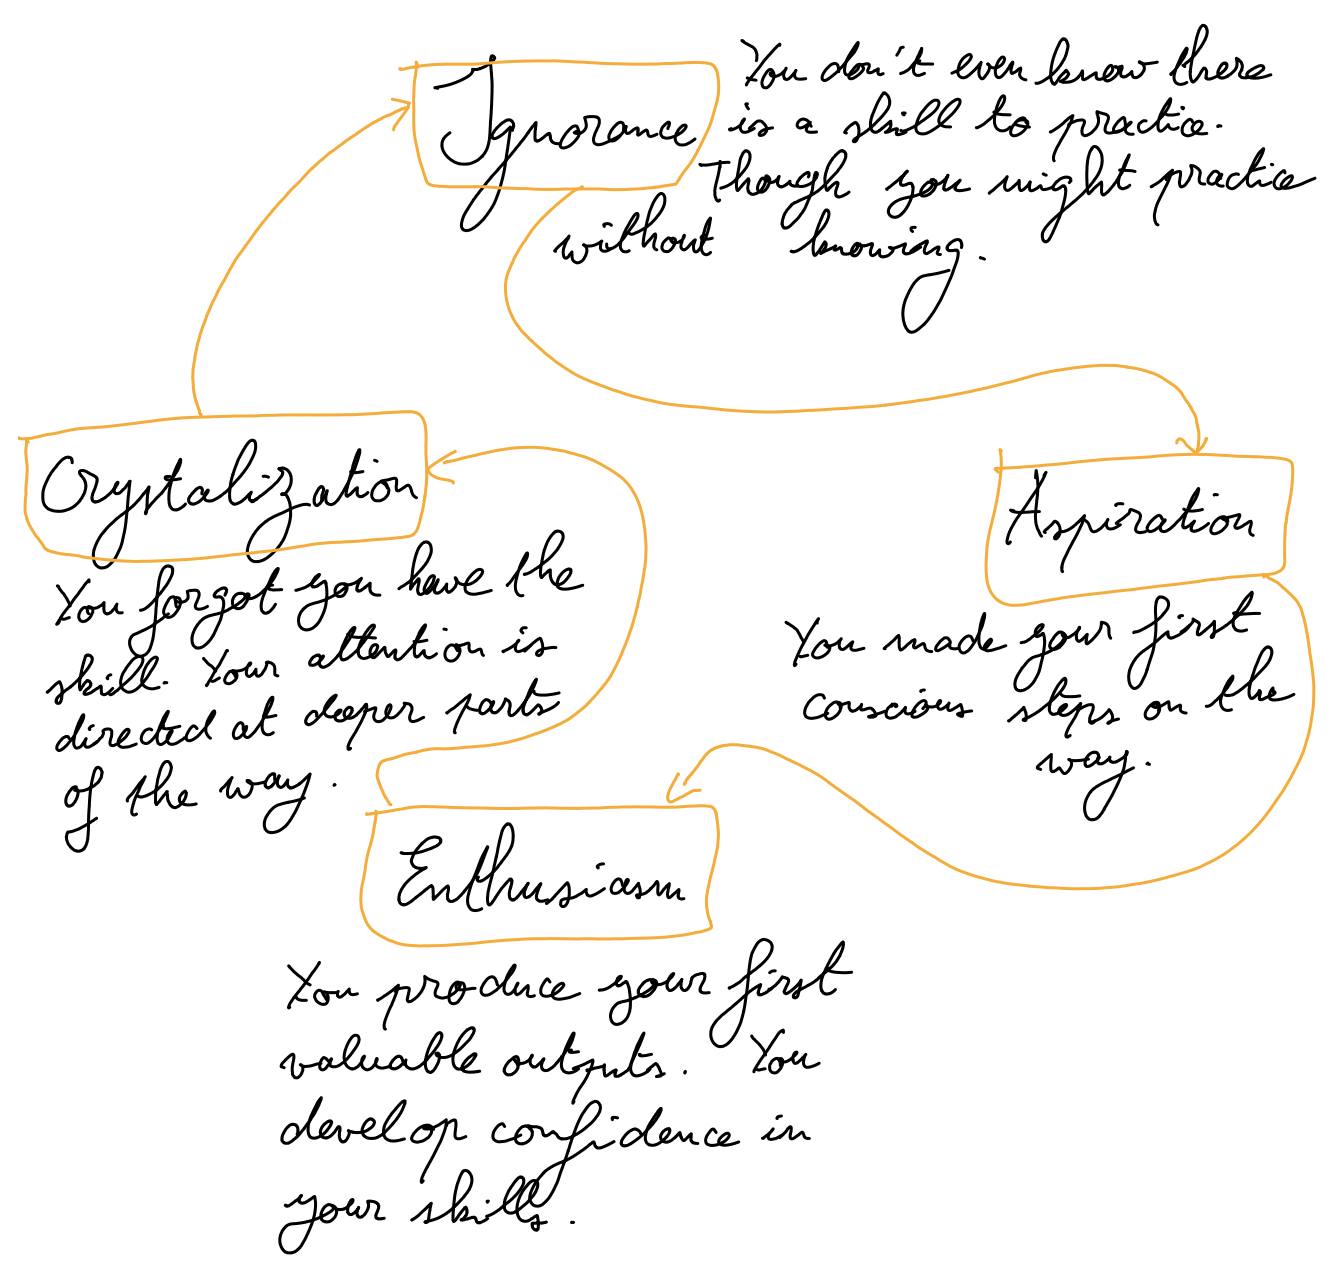 Ignorance
You don't even know there
is a skill to practice.
Though you might practice
without knowing.
Aspiration
You made your first
conscious steps on the
way.
Enthusiasm
You produce your first
valuable outputs. You
develop confidence in
your skills.
Crystalization
You forgot you have the
skill. Your attention is
directed at deeper parts
of the way.